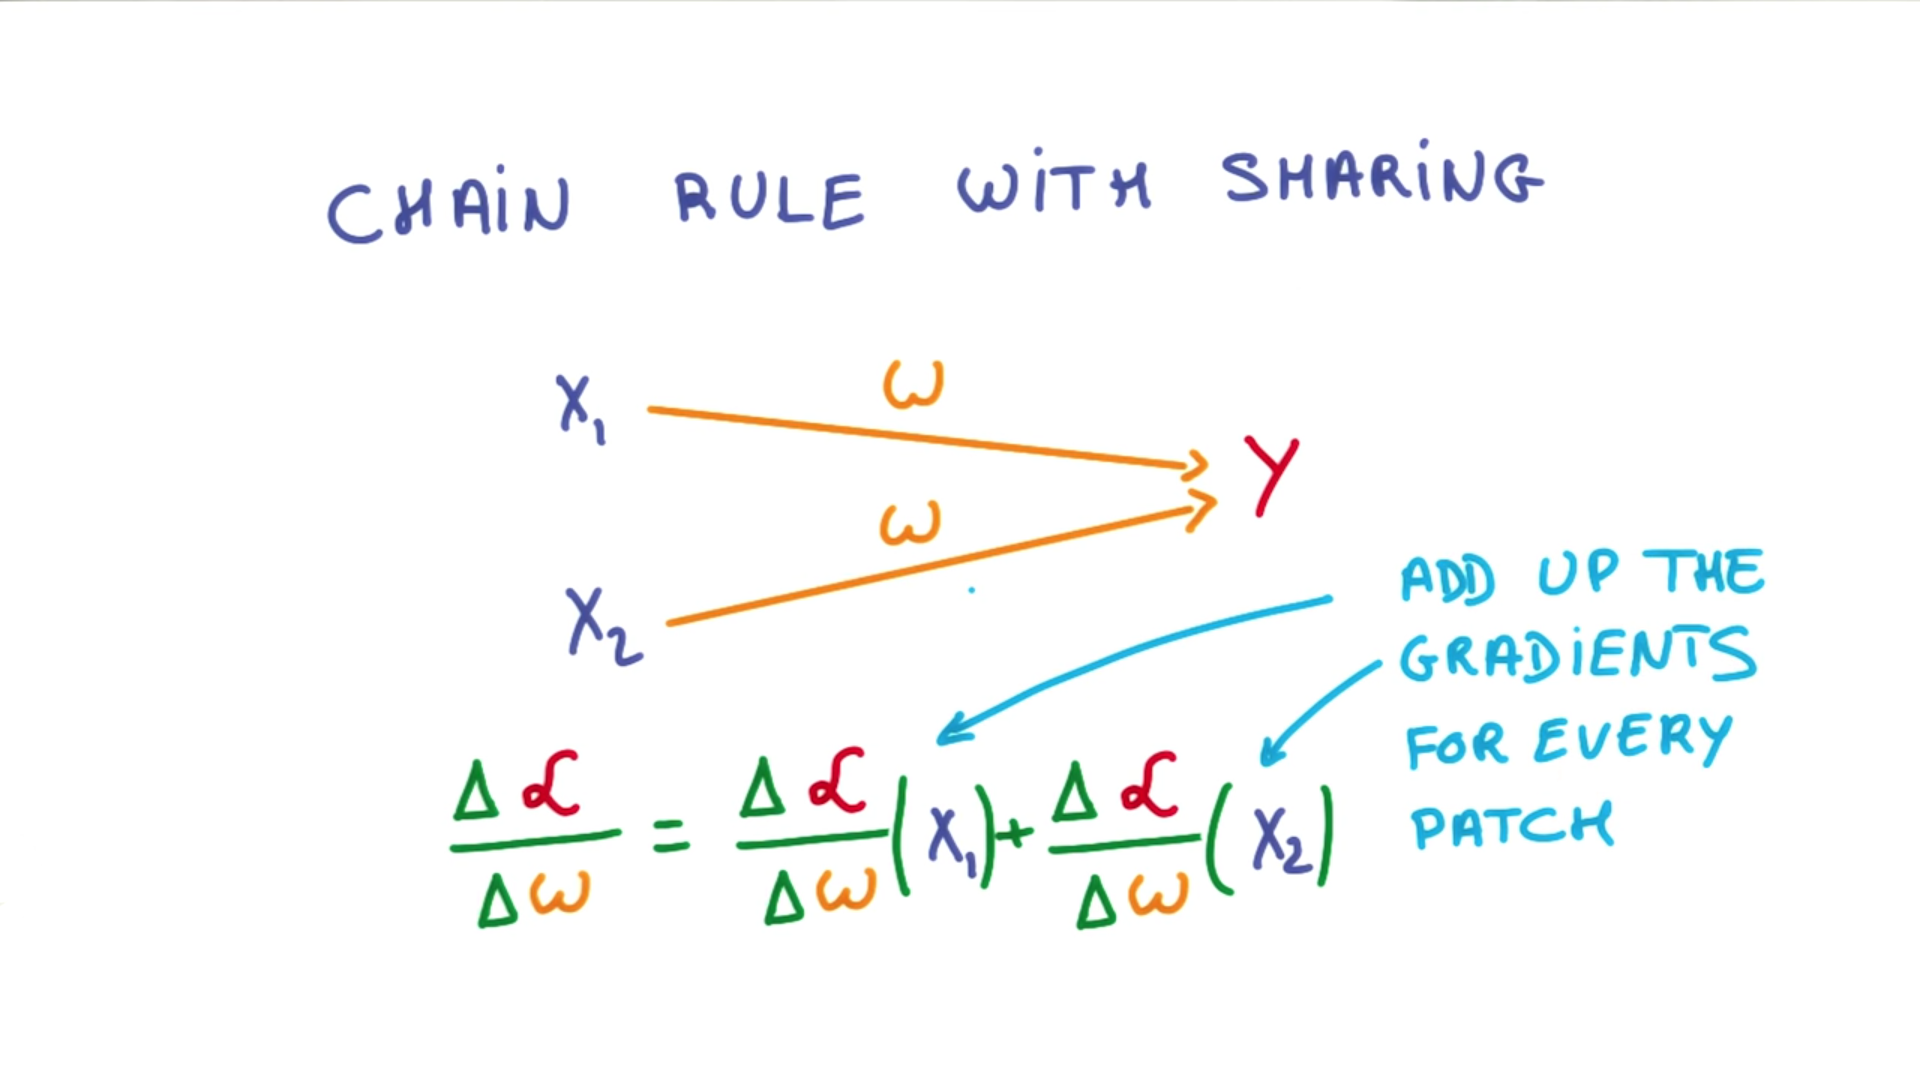 CHAIN RULE WITH SHARING
X₁ ω
Y
ω
X₂
ADD UP THE
GRADIENTS
FOR EVERY
PATCH
Δℒ/Δω = Δℒ/Δω (X₁) + Δℒ/Δω (X₂)